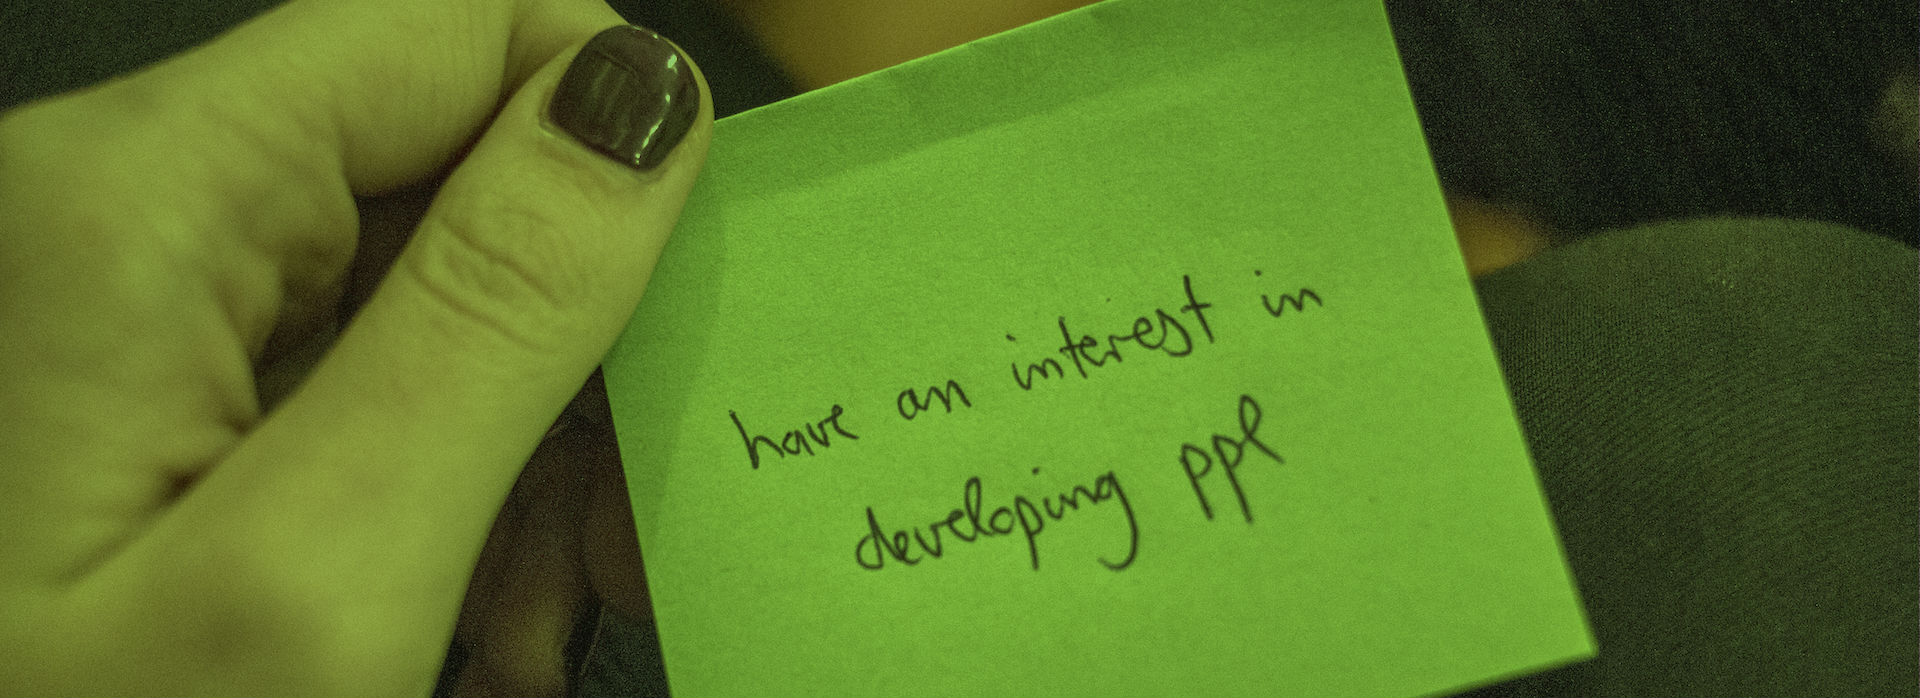 have an interest in
developing ppl